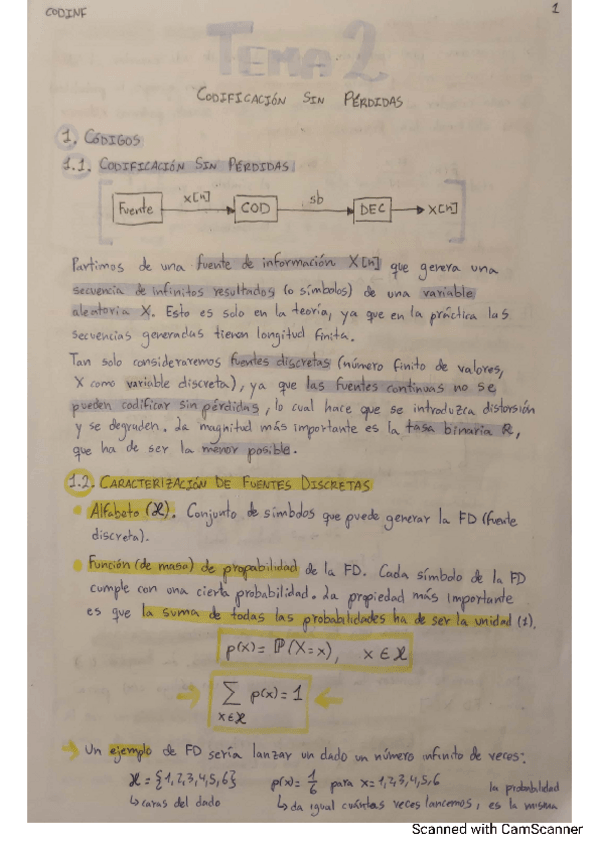 CODINF
1
TEMA 2
CODIFICACIÓN SIN PÉRDIDAS
1. CÓDIGOS
1.1. CODIFICACIÓN SIN PÉRDIDAS
Fuente X[n] COD sb DEC X[n]
Partimos de una fuente de información X[n] que genera una
secuencia de infinitos resultados (o símbolos) de una variable
aleatoria X. Esto es solo en la teoría, ya que en la práctica las
secuencias generadas tienen longitud finita.
Tan solo consideraremos fuentes discretas (número finito de valores,
X como variable discreta), ya que las fuentes continuas no se
pueden codificar sin pérdidas, lo cual hace que se introduzca distorsión
y se degraden. La magnitud más importante es la tasa binaria R,
que ha de ser la menor posible.
1.2. CARACTERIZACIÓN DE FUENTES DISCRETAS
• Alfabeto (𝒳). Conjunto de símbolos que puede generar la FD (fuente
discreta).
• Función (de masa) de propabilidad de la FD. Cada símbolo de la FD
cumple con una cierta probabilidad. La propiedad más importante
es que la suma de todas las probabilidades ha de ser la unidad (1).
p(x) = ℙ(X=x), x ∈ 𝒳
→ ∑ p(x) = 1 ←
x∈𝒳
→ Un ejemplo de FD sería lanzar un dado un número infinito de veces:
𝒳 = {1,2,3,4,5,6} p(x) = 1/6 para x=1,2,3,4,5,6 la probabilidad
↳ caras del dado ↳ da igual cuántas veces lancemos, es la misma
Scanned with CamScanner